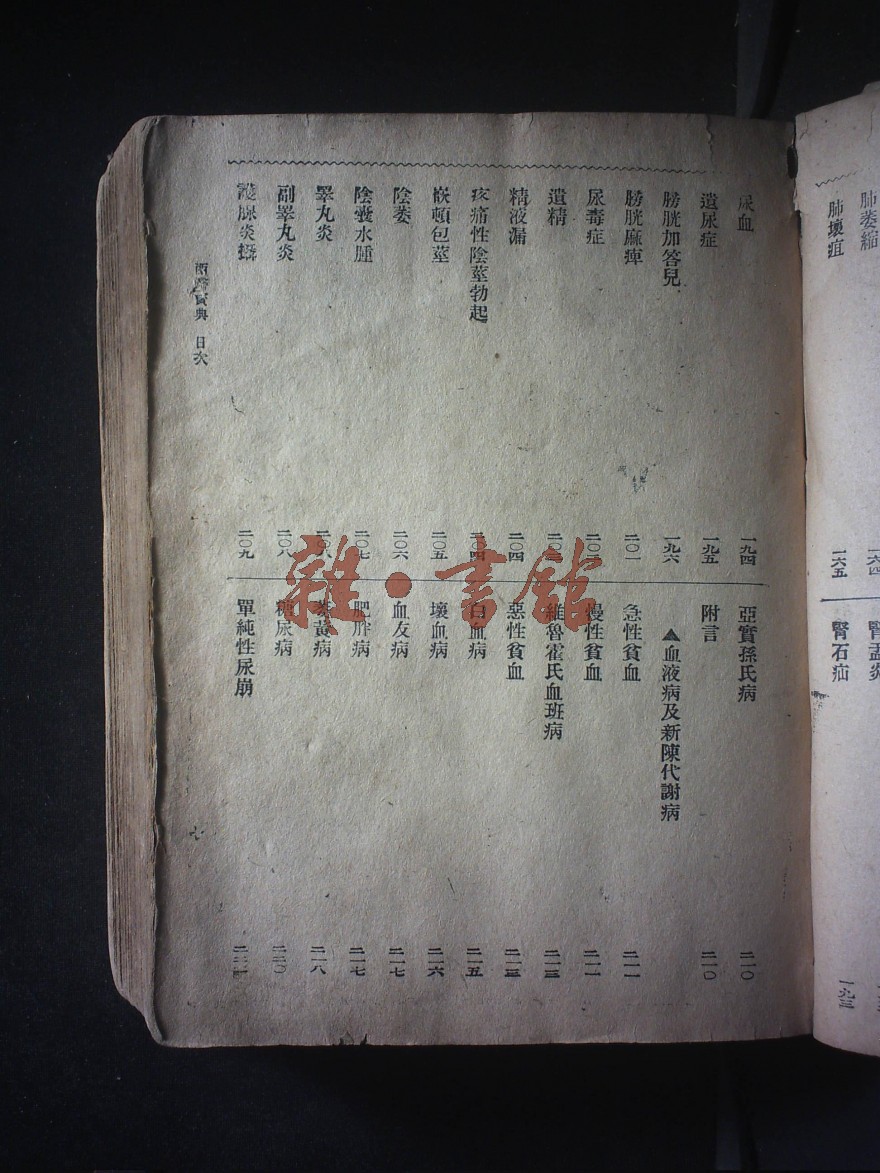 肺萎縮
一六四
肺壞疽
一六五
腎盂炎
腎石疝
一九三
尿血
一九四
遺尿症
一九五
膀胱加答兒
一九六
膀胱麻痺
二〇一
尿毒症
遺精
精液漏
二〇四
疼痛性陰莖勃起
嵌頓包莖
二〇五
陰萎
二〇六
陰囊水腫
二〇七
睾丸炎
二〇八
副睾丸炎
二〇八
攝腺炎
二〇九
亞實孫氏病
二一〇
附言
二一〇
▲血液病及新陳代謝病
急性貧血
二一一
慢性貧血
二一一
維魯霍氏血班病
二一三
惡性貧血
二一三
白血病
二一五
壞血病
二一六
血友病
二一七
肥胖病
二一七
萎黃病
二一八
糖尿病
二二〇
單純性尿崩
寶典 目次
雜·書館